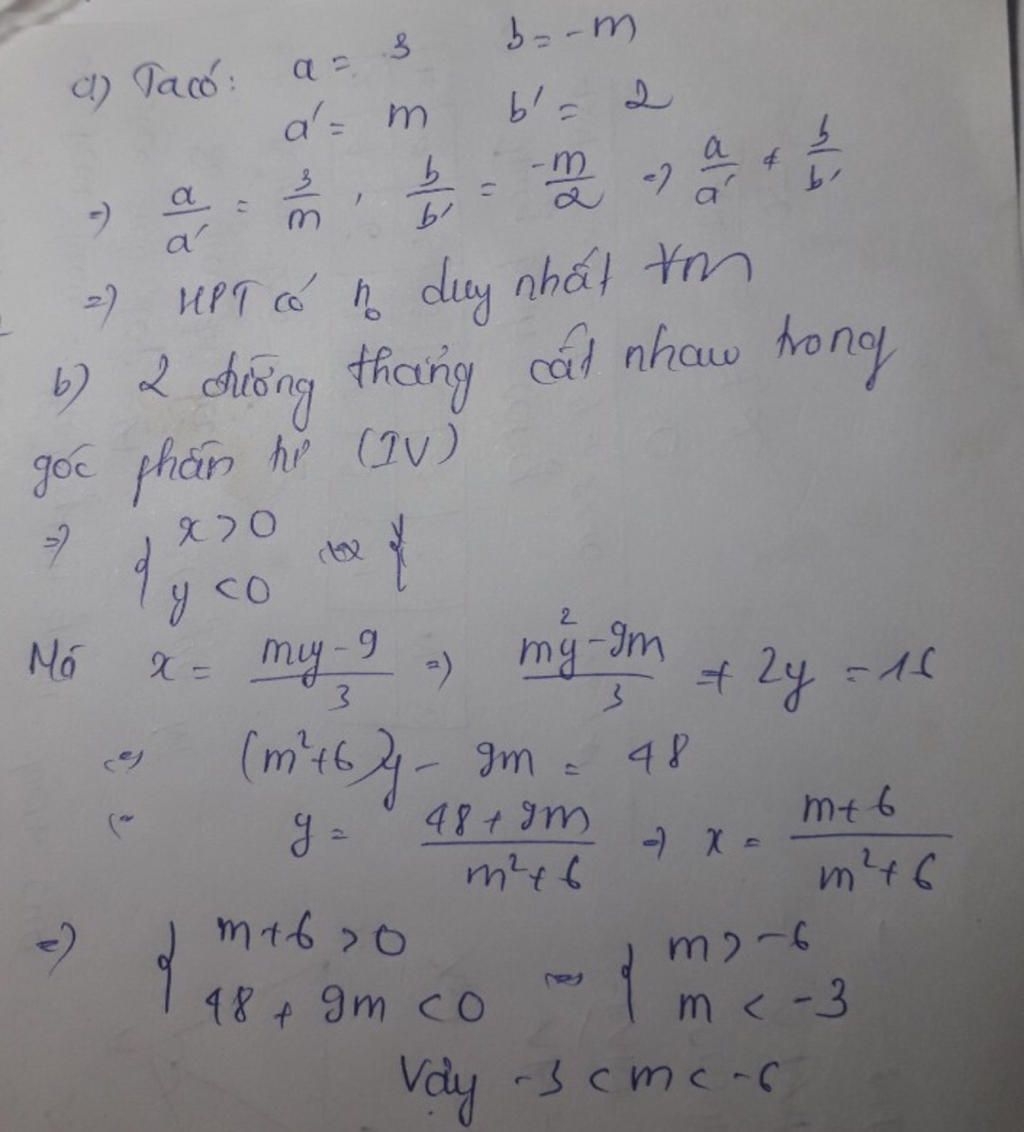 a) Ta có: a = 3 b = -m
a' = m b' = 2
=> a/a' = 3/m , b/b' = -m/2 => a/a' ≠ b/b'
=> HPT có n₀ duy nhất ∀m
b) 2 đường thẳng cắt nhau trong
góc phần tư (IV)
=> { x > 0
y < 0 {
x = (my - 9)/3 => (m²y - 9m)/3 + 2y = 16
<=> (m² + 6)y - 9m = 48
y = (48 + 9m)/(m² + 6) => x = (m + 6)/(m² + 6)
=> { m + 6 > 0 <=> { m > -6
48 + 9m < 0 m < -3
Vậy -3 < m < -6